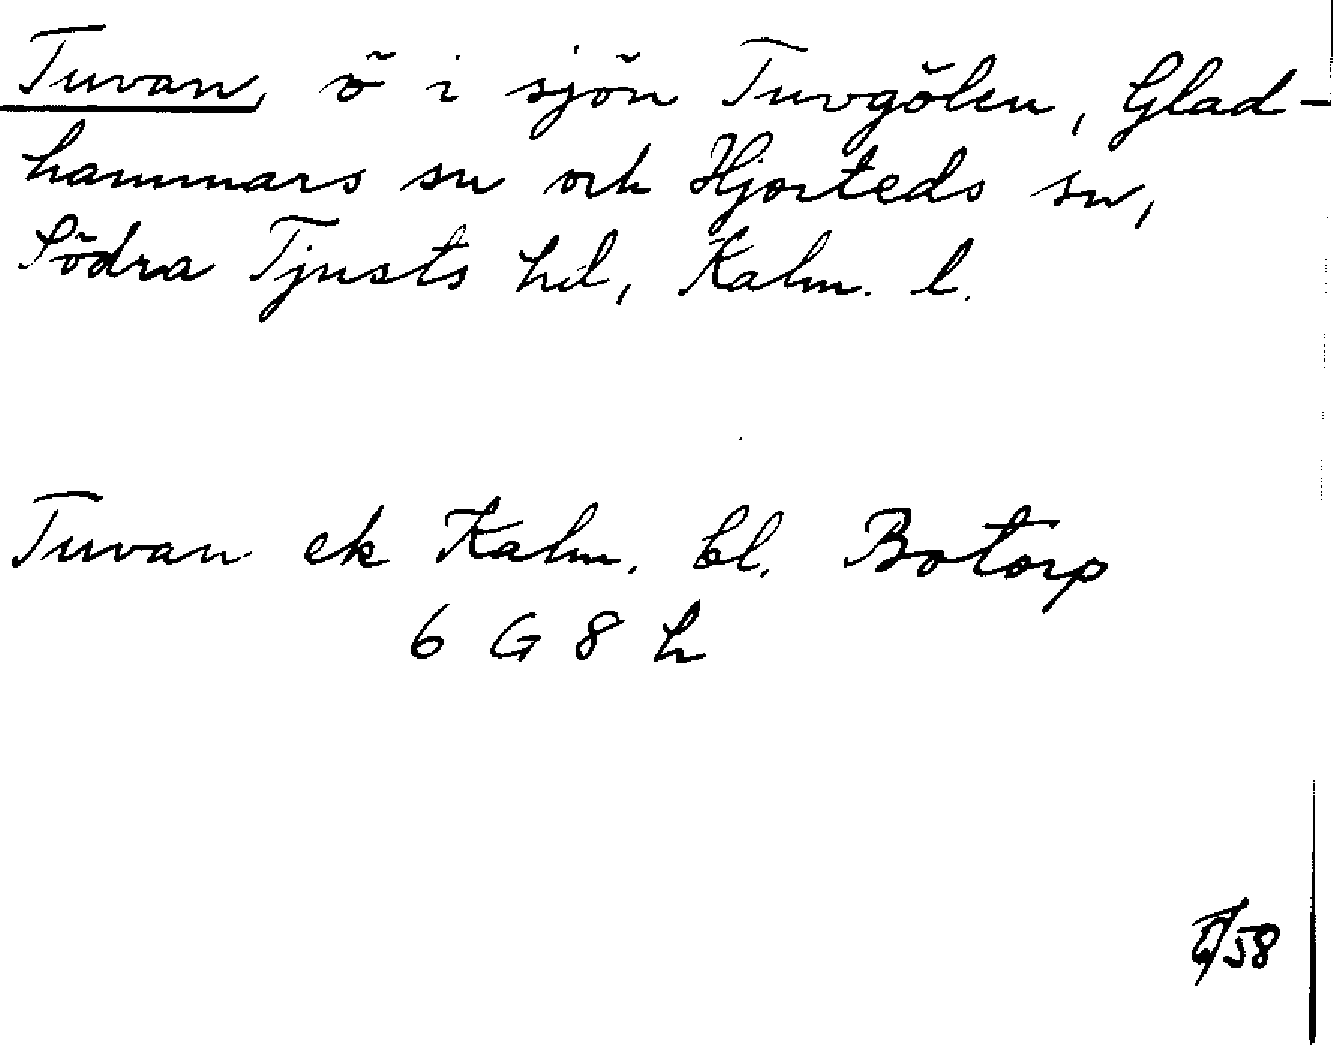 Tuvan, ö i sjön Tuvgölen, Glad-
hammars sn och Hjorteds sn,
Södra Tjusts hd, Kalm. l.
Tuvan ek Kalm. bl. Botorp
6 G 8 h
/58